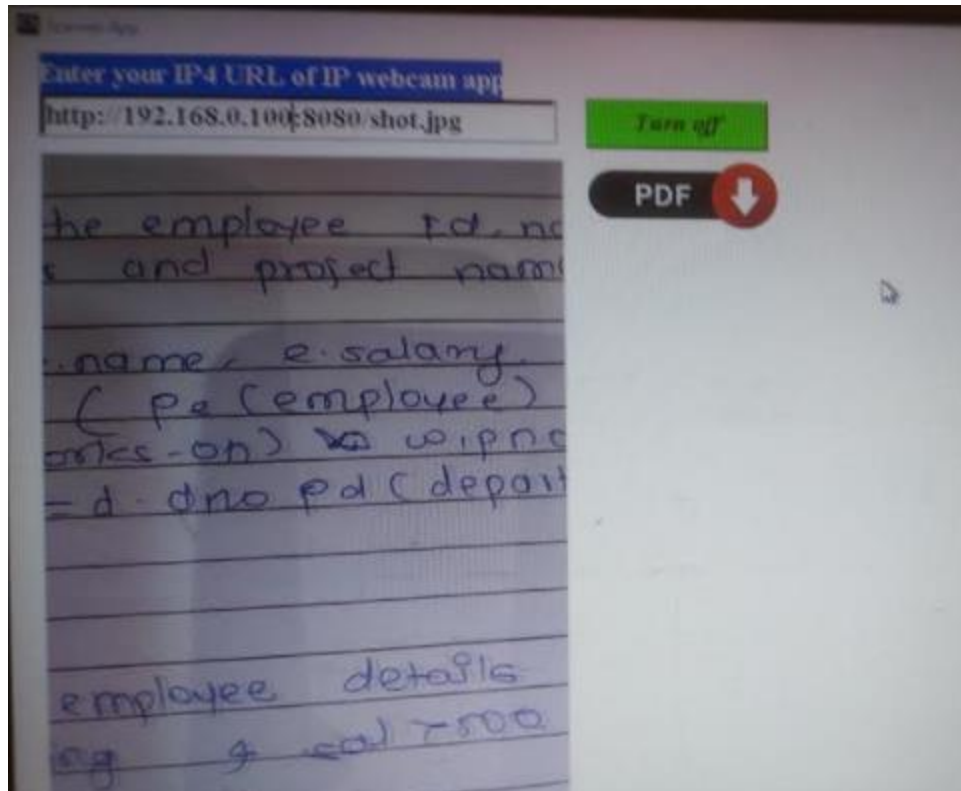 Scanner App
Enter your IP4 URL of IP webcam app
http://192.168.0.100:8080/shot.jpg
Turn off
PDF
he employee Id, no
s and project name
.name, e.salary.
( Pe (employee)
orks-on) w.pno
= d. dno Pd ( depart
employee details
ng & sal >500